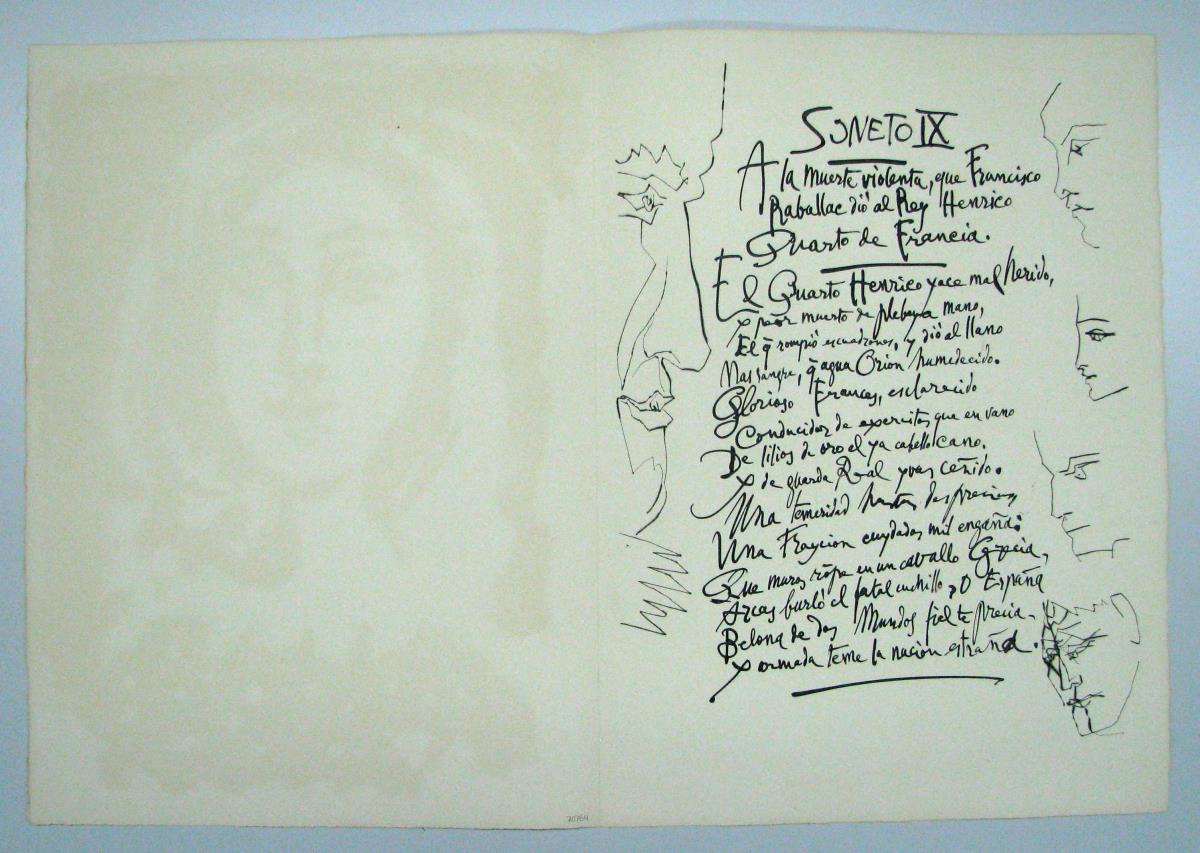 SONETO IX
A la muerte violenta, que Francisco
Raballac dió al Rey Henrico
Quarto de Francia.
El Quarto Henrico yace mal herido,
y peor muerto de plebeya mano,
El q̄ rompió escuadrones, y dió al llano
Mas sangre, q̄ agua Orion humedecido.
Glorioso Frances, esclarecido
Conducidor de exercitos que en vano
De lilios de oro el ya cabello cano,
y de guarda Real yvas ceñido.
Una temeridad hastas desprecia,
Una Trayçion cuydados mil engaña:
Que muros rōpe en un cavallo Grecia,
Arcas burló el fatal cuchillo, O España
Belona de dos Mundos fiel te precia.
y armada teme la nación estraña.
70764